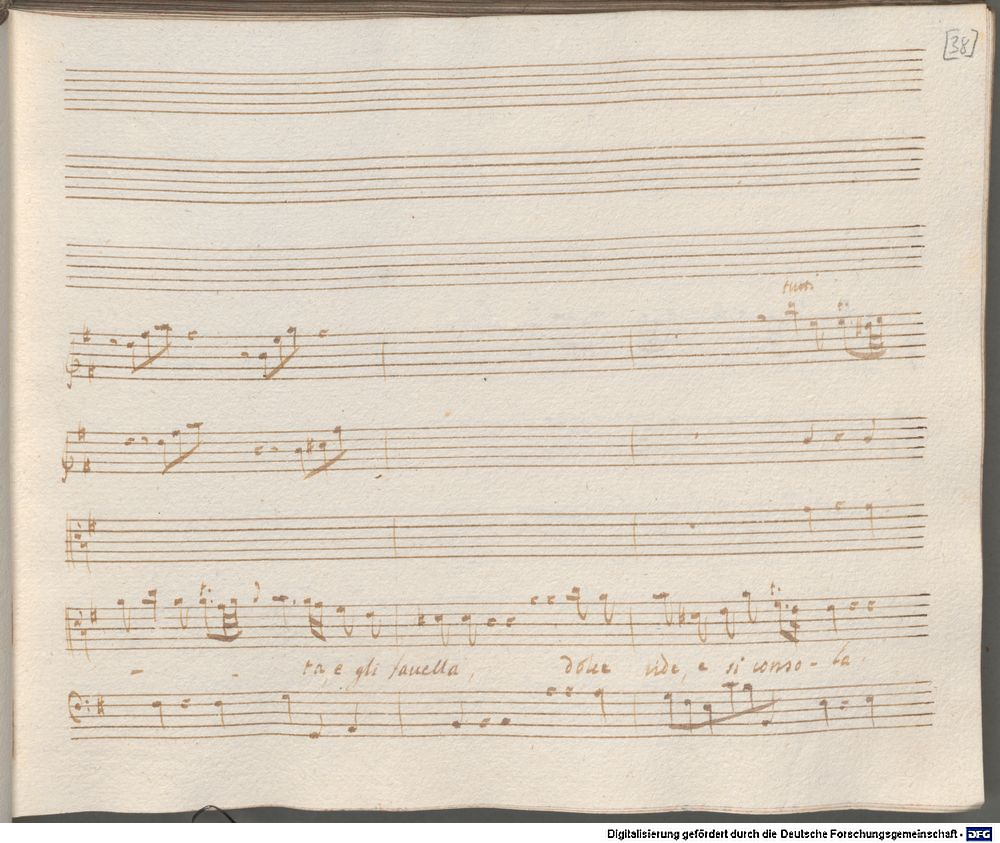 [38]
tutti
- - ta, e gli favella, dolce ride, e si conso-la.
Digitalisierung gefördert durch die Deutsche Forschungsgemeinschaft - DFG